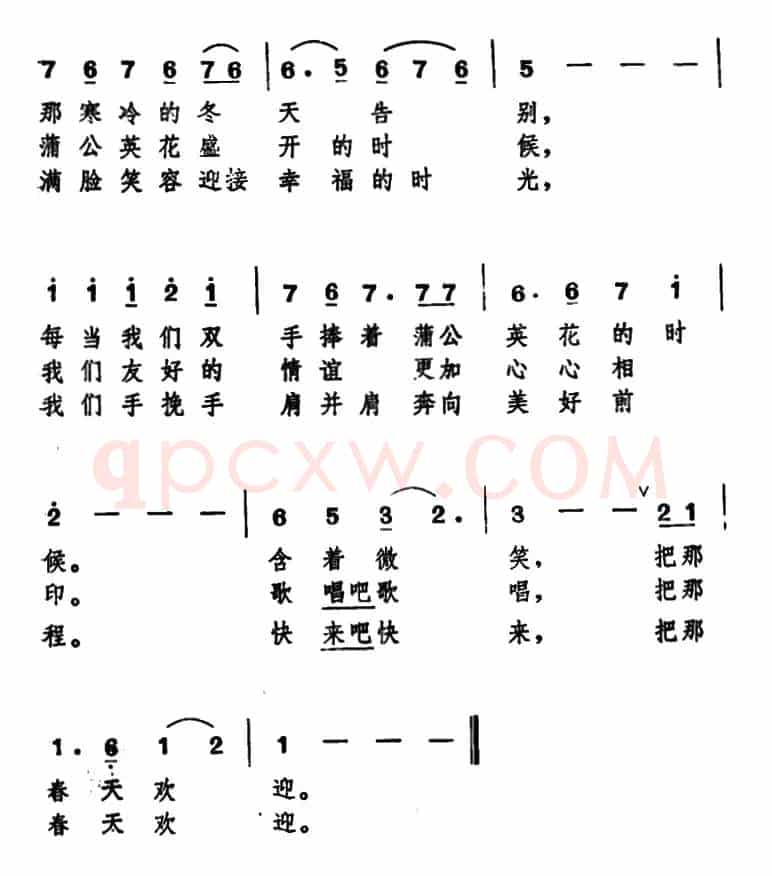 7 6 7 6 7 6 | 6. 5 6 7 6 | 5 — — — |
那寒冷的冬 天 告 别,
蒲公英花盛 开的时 候,
满脸笑容迎接 幸福的时 光,
1 1 1 2 1 | 7 6 7. 7 7 | 6. 6 7 1 |
每当我们双 手捧着蒲公 英花的时
我们友好的 情谊 更加 心心相
我们手挽手 肩并肩奔向 美好前
qpcxw.COM
2 — — — | 6 5 3 2. | 3 — — 2 1 |
候。 含着微 笑, 把那
印。 歌唱吧歌 唱, 把那
程。 快来吧快 来, 把那
1. 6 1 2 | 1 — — — ‖
春天欢 迎。
春天欢 迎。